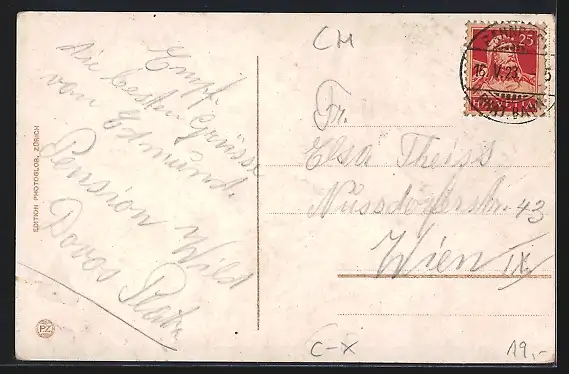 CH
25
15. V. 23
HELVETIA
Empf.
die besten Grüsse
von Edmund.
Pension Wild
Davos Platz
Fr.
Elsa Theiss
Nussdorferstr. 43
Wien IX.
EDITION PHOTOGLOB, ZÜRICH
PZ
C-X
19,-